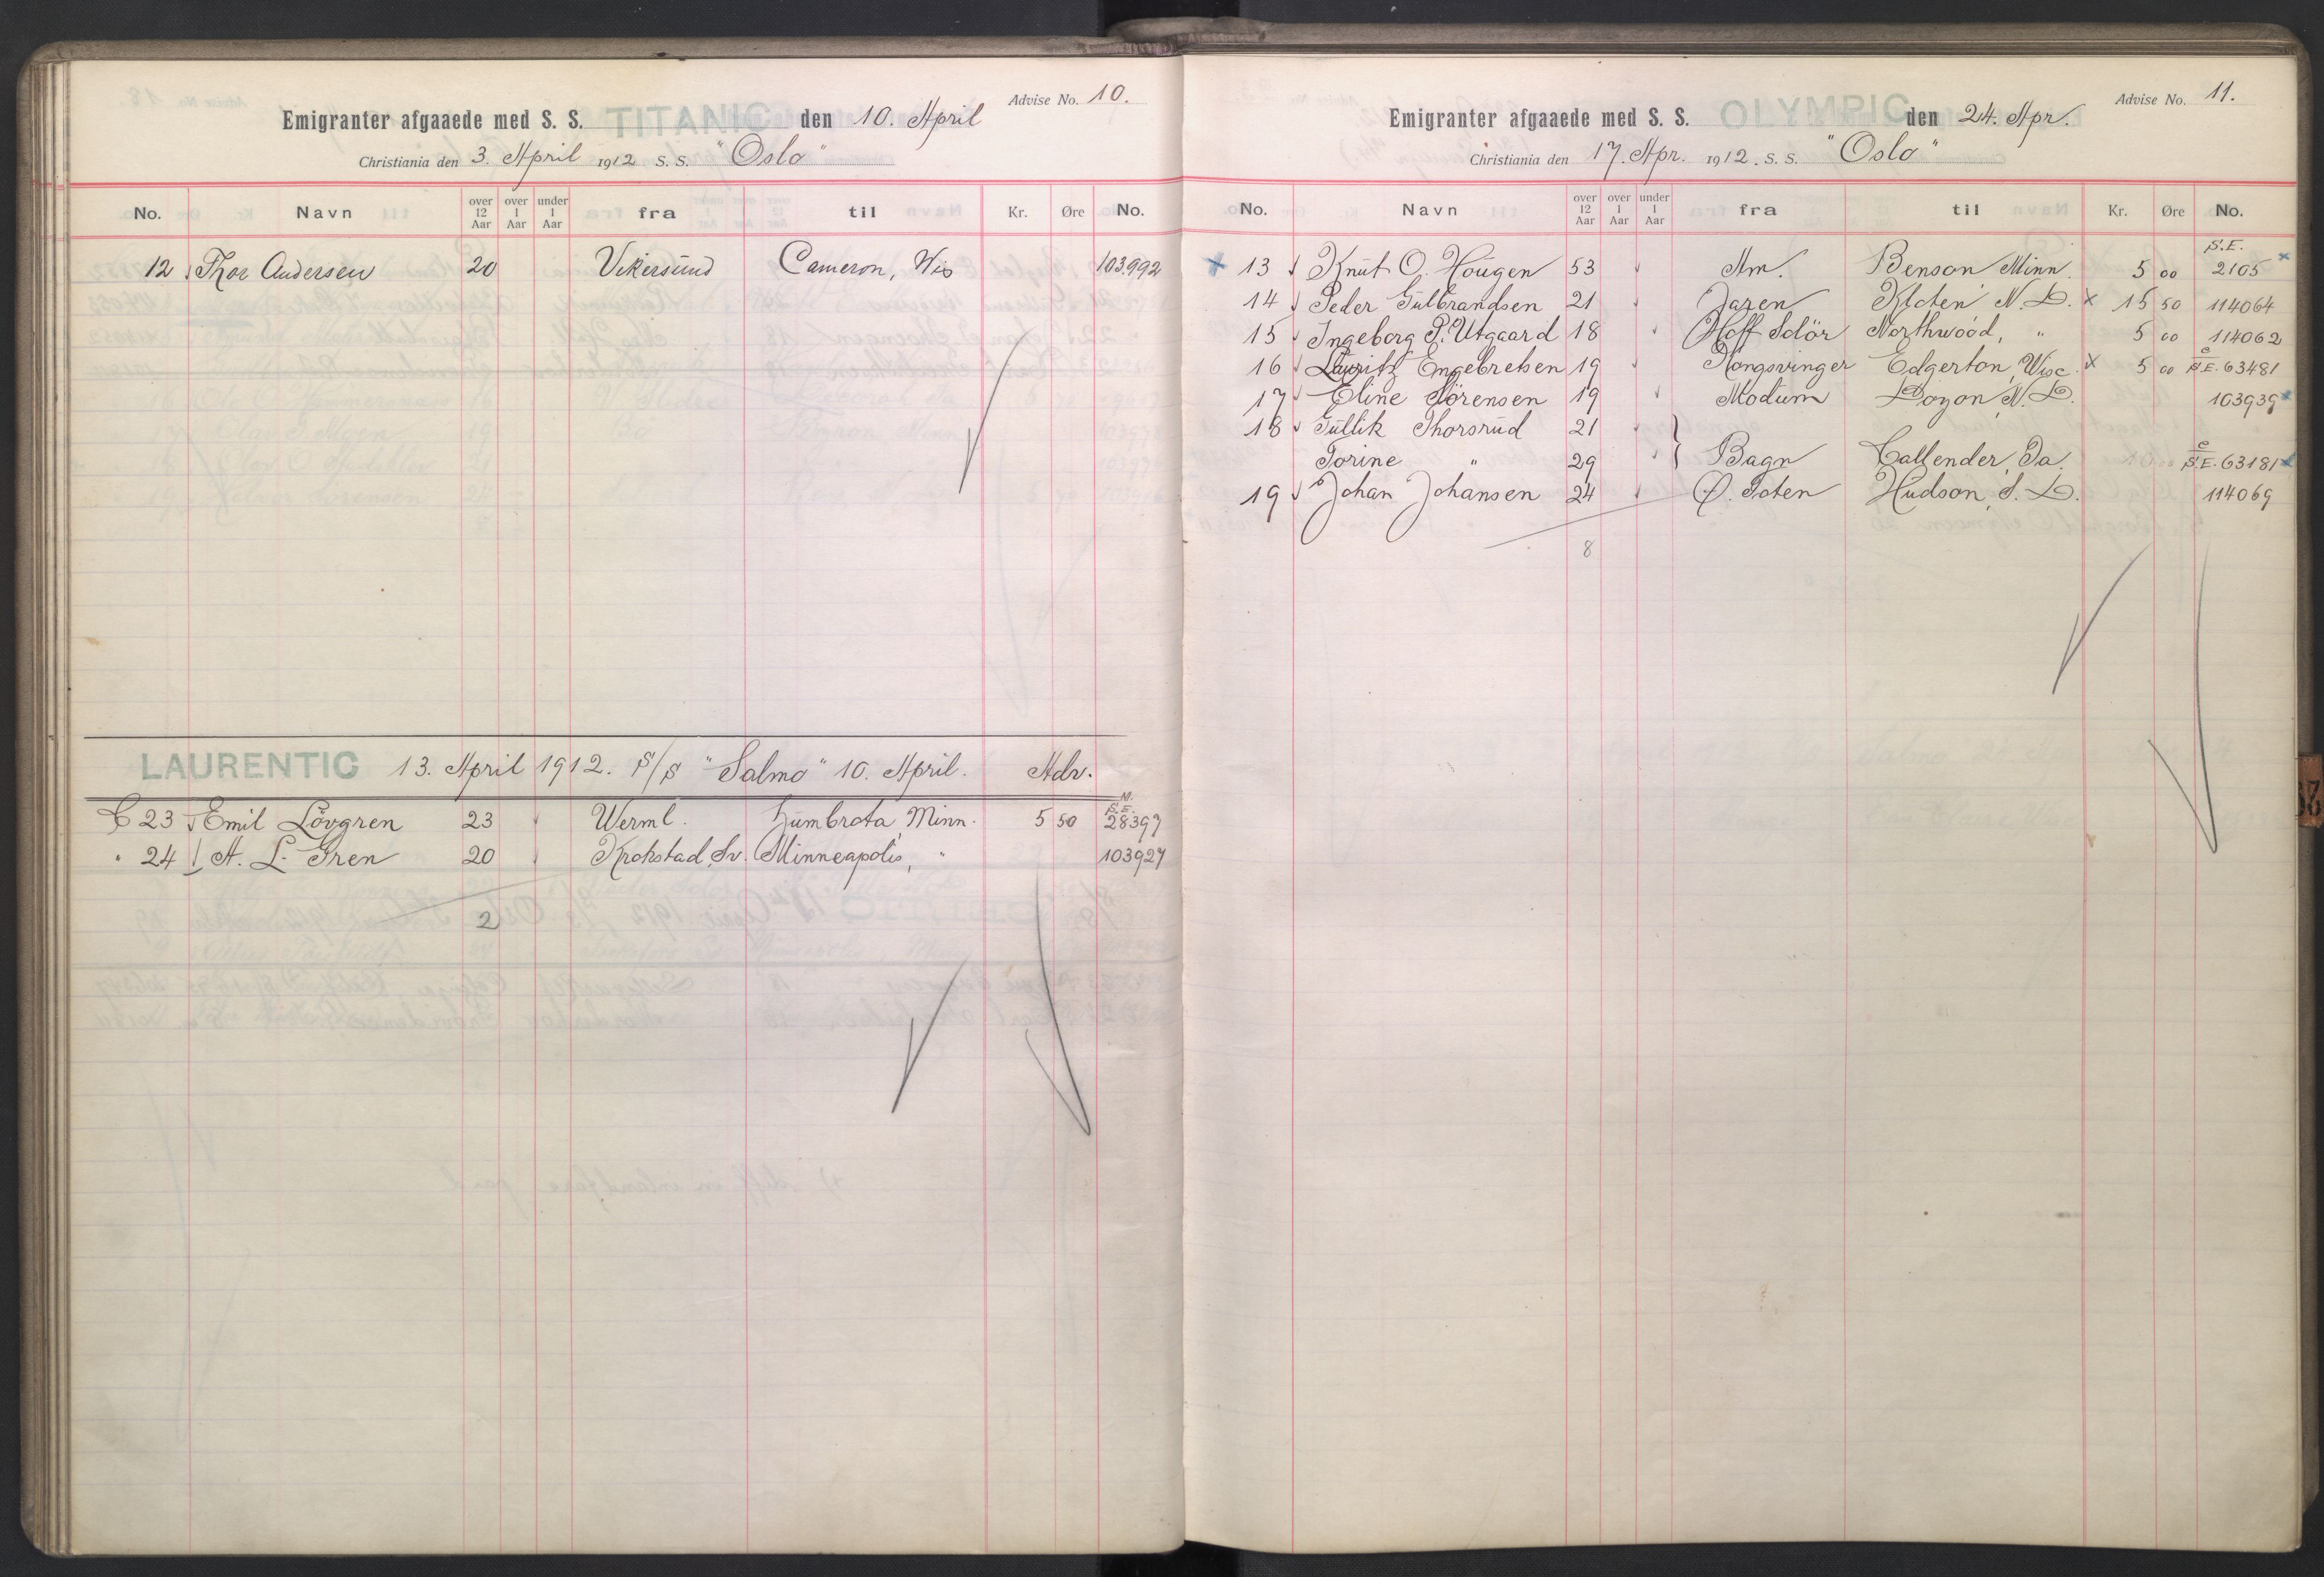 Advise No. 10.
Emigranter afgaaede med S. S. TITANIC den 10. April
Christiania den 3. April 1912 S. S. "Oslo"
No. Navn over 12 Aar over 1 Aar under 1 Aar fra til Kr. Øre No.
12 Thor Andersen 20 Vikersund Cameron, Wis 103.992
LAURENTIC 13. April 1912. S/S "Salmo" 10. April. Adv.
C 23 Emil Lövgren 23 Werml. Zumbrota, Minn. 5 50 S.E. 28397
" 24 A. L. Gren 20 Krokstad, Sv. Minneapolis, " 103927
2
Advise No. 11.
Emigranter afgaaede med S. S. OLYMPIC den 24. Apr.
Christiania den 17. Apr. 1912. S. S. "Oslo"
No. Navn over 12 Aar over 1 Aar under 1 Aar fra til Kr. Øre No.
x 13 Knut O. Hougen 53 Am. Benson Minn. 5 00 S.E. 2105 x
14 Peder Gulbrandsen 21 Jaren Kloten N. D. x 15 50 114064
15 Ingeborg P. Utgaard 18 Hoff Solör Northwood, " 5 00 114062
16 Lauritz Engebretsen 19 Kongsvinger Edgerton, Wisc. x 5 00 S.E. 63481
17 Eline Sörensen 19 Modum N. D. 103939 x
18 Gullik Thorsrud 21
Torine " 29 } Bagn Callender, Ia. S.E. 63181 x
19 Johan Johansen 24 Ø. Toten Hudson, S. D. 114069
8